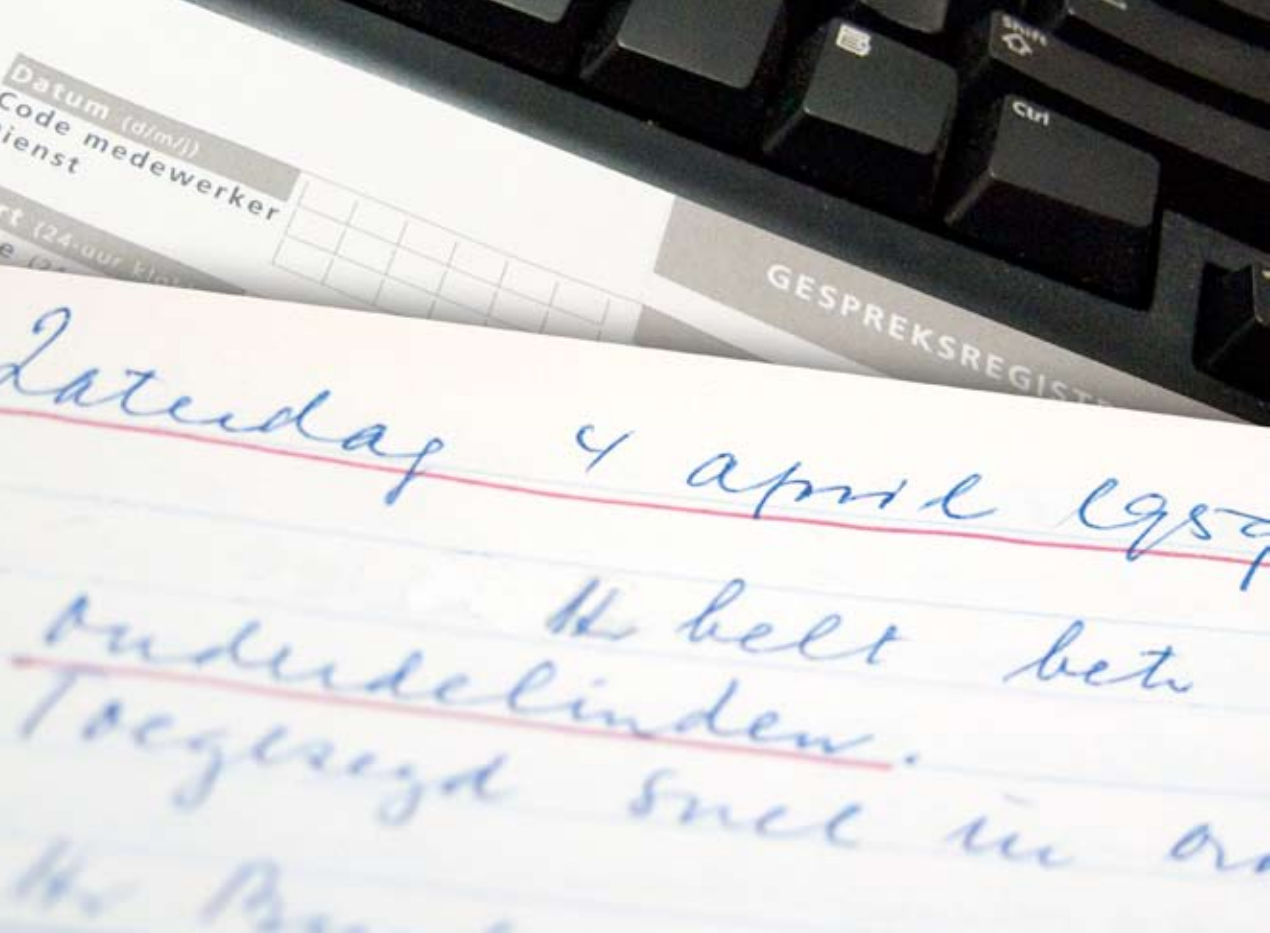 Shift
Ctrl
Datum (d/m/j)
Code medewerker
ienst
rt (24-uur klok
GESPREKSREGISTR
Zaterdag 4 april 1959
Hr belt betr
onderdelinden.
Toegezegd snel in ord
Hr